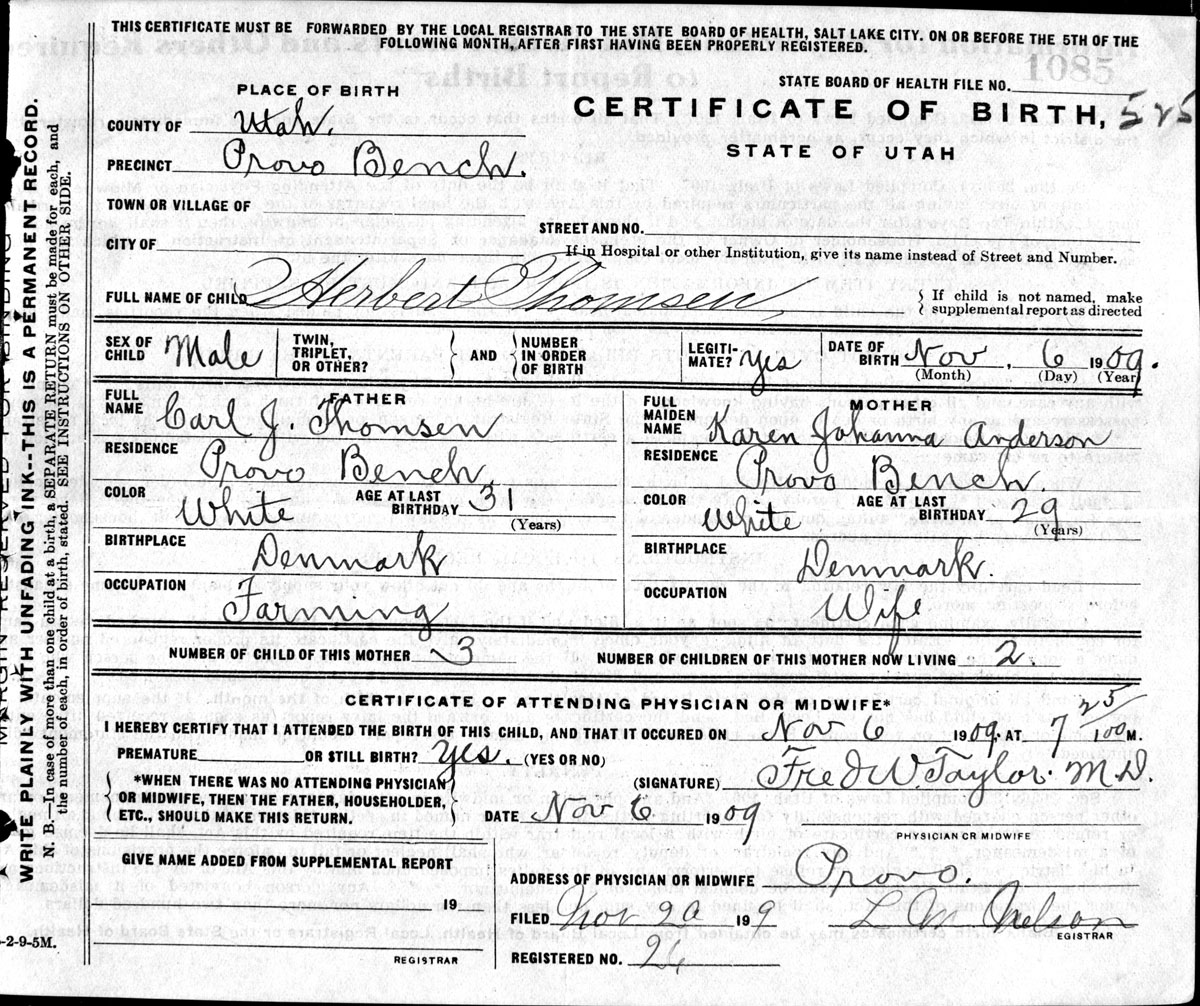 THIS CERTIFICATE MUST BE FORWARDED BY THE LOCAL REGISTRAR TO THE STATE BOARD OF HEALTH, SALT LAKE CITY. ON OR BEFORE THE 5TH OF THE
FOLLOWING MONTH, AFTER FIRST HAVING BEEN PROPERLY REGISTERED.
1085
STATE BOARD OF HEALTH FILE NO.
PLACE OF BIRTH
CERTIFICATE OF BIRTH, 525
STATE OF UTAH
COUNTY OF Utah.
PRECINCT Provo Bench.
TOWN OR VILLAGE OF
STREET AND NO.
CITY OF
If in Hospital or other Institution, give its name instead of Street and Number.
FULL NAME OF CHILD Herbert Thomsen,
If child is not named, make
supplemental report as directed
SEX OF CHILD Male TWIN, TRIPLET, OR OTHER? AND NUMBER IN ORDER OF BIRTH LEGITI-MATE? yes DATE OF BIRTH Nov, 6 1909.
(Month) (Day) (Year)
FATHER
FULL NAME Carl J. Thomsen
RESIDENCE Provo Bench,
COLOR White AGE AT LAST BIRTHDAY 31
(Years)
BIRTHPLACE Denmark
OCCUPATION Farming
MOTHER
FULL MAIDEN NAME Karen Johanna Anderson
RESIDENCE Provo Bench,
COLOR White AGE AT LAST BIRTHDAY 29
(Years)
BIRTHPLACE Denmark.
OCCUPATION Wife
NUMBER OF CHILD OF THIS MOTHER 3 NUMBER OF CHILDREN OF THIS MOTHER NOW LIVING 2
CERTIFICATE OF ATTENDING PHYSICIAN OR MIDWIFE*
I HEREBY CERTIFY THAT I ATTENDED THE BIRTH OF THIS CHILD, AND THAT IT OCCURED ON Nov 6 1909. AT 7 25/100 M.
PREMATURE OR STILL BIRTH? yes. (YES OR NO)
*WHEN THERE WAS NO ATTENDING PHYSICIAN
OR MIDWIFE, THEN THE FATHER, HOUSEHOLDER,
ETC., SHOULD MAKE THIS RETURN.
(SIGNATURE) Fred W. Taylor. M.D.
DATE Nov 6 1909
PHYSICIAN OR MIDWIFE
GIVE NAME ADDED FROM SUPPLEMENTAL REPORT
19
REGISTRAR
ADDRESS OF PHYSICIAN OR MIDWIFE Provo
FILED Nov 20 199 L M Nelson
EGISTRAR
REGISTERED NO. 26
-2-9-5M.
WRITE PLAINLY WITH UNFADING INK--THIS IS A PERMANENT RECORD.
N. B.—In case of more than one child at a birth, a SEPARATE RETURN must be made for each, and
the number of each, in order of birth, stated. SEE INSTRUCTIONS ON OTHER SIDE.